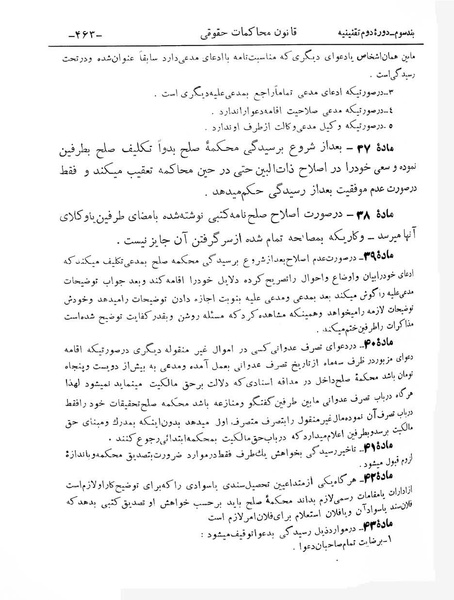 بند سوم ـ دورهٔ دوم تقنینیه قانون محاکمات حقوقی -۴۶۳-
مابین همان اشخاص یا دعوای دیگری که مناسبت تامه با ادعای مدعی دارد سابقاً عنوان شده و در تحت
رسیدگی است.
۳ـ درصورتیکه ادعای مدعی تماماً راجع بمدعی علیه دیگری است .
۴ـ درصورتیکه مدعی صلاحیت اقامه دعوا را ندارد .
۵ـ درصورتیکه وکیل مدعی وکالت از طرف او ندارد .
مادهٔ ۳۷ - بعد از شروع برسیدگی محکمهٔ صلح بدواً تکلیف صلح بطرفین
نموده و سعی خود را در اصلاح ذات البین حتی در حین محاکمه تعقیب میکند و فقط
درصورت عدم موفقیت بعد از رسیدگی حکم میدهد .
مادهٔ ۳۸ - درصورت اصلاح صلح نامه کتبی نوشته شده بامضای طرفین یا وکلای
آنها میرسد ـ و کاریکه بمصالحه تمام شده از سر گرفتن آن جایز نیست .
مادهٔ ۳۹ـ درصورت عدم اصلاح بعد از شروع برسیدگی محکمه صلح بمدعی تکلیف میکند که
ادعای خود را بیان و اوضاع و احوال را تصریح کرده دلایل خود را اقامه کند و بعد جواب توضیحات
مدعی علیه را گوش میکند بعد بمدعی و مدعی علیه بنوبت اجازه دادن توضیحات را میدهد و خودش
توضیحات لازمه را میخواهد و همینکه مشاهده کرد که مسئله روشن و بقدر کفایت توضیح شده است
مذاکرات را ختم میکند .
مادهٔ ۴۰ـ در دعوای تصرف عدوانی کسی در اموال غیر منقوله دیگری درصورتیکه اقامه
دعوای مزبور در ظرف سه ماه از تاریخ تصرف عدوانی بعمل آمده و مدعی به بیش از دویست و پنجاه
تومان باشد محکمهٔ صلح داخل در مداقه اسنادی که دلالت بر حق مالکیت مینماید نمیشود لهذا
هرگاه در باب تصرف عدوانی مابین طرفین گفتگو و منازعه باشد محکمه صلح تحقیقات خود را فقط
در باب تصرف آن نموده مال غیر منقول را بتصرف متصرف اول میدهد بدون اینکه بمدرک و مبنای حق
مالکیت برسد و بطرفین اعلام میدارد که در باب حق مالکیت بمحکمه ابتدائی رجوع کنند .
مادهٔ ۴۱ـ تأخیر رسیدگی بخواهش یک طرف فقط در موارد ضرورت بتصدیق محکمه و باندازهٔ
لزوم قبول میشود .
مادهٔ ۴۲ـ هرگاه یکی از متداعیین تحصیل سندی یا سوادی را که برای توضیح کار او لازم است
از ادارات یا مقامات رسمی لازم بداند محکمهٔ صلح باید بر حسب خواهش او تصدیق کتبی بدهد که
فلان سند یا سواد آن و یا فلان استعلام برای فلان امر لازم است
مادهٔ ۴۳ـ در موارد ذیل رسیدگی بدعوا توقیف میشود :
۱ـ برضایت تمام صاحبان دعوا .